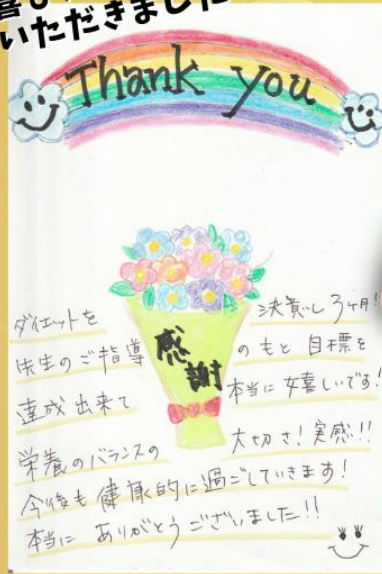 いただきました
Thank you
感謝
ダイエットを 決意し3ヶ月!
先生のご指導 のもと 目標を
達成出来て 本当に嬉しいです!
栄養のバランスの 大切さ!実感!!
今後も健康的に過ごしていきます!
本当に ありがとうございました!!